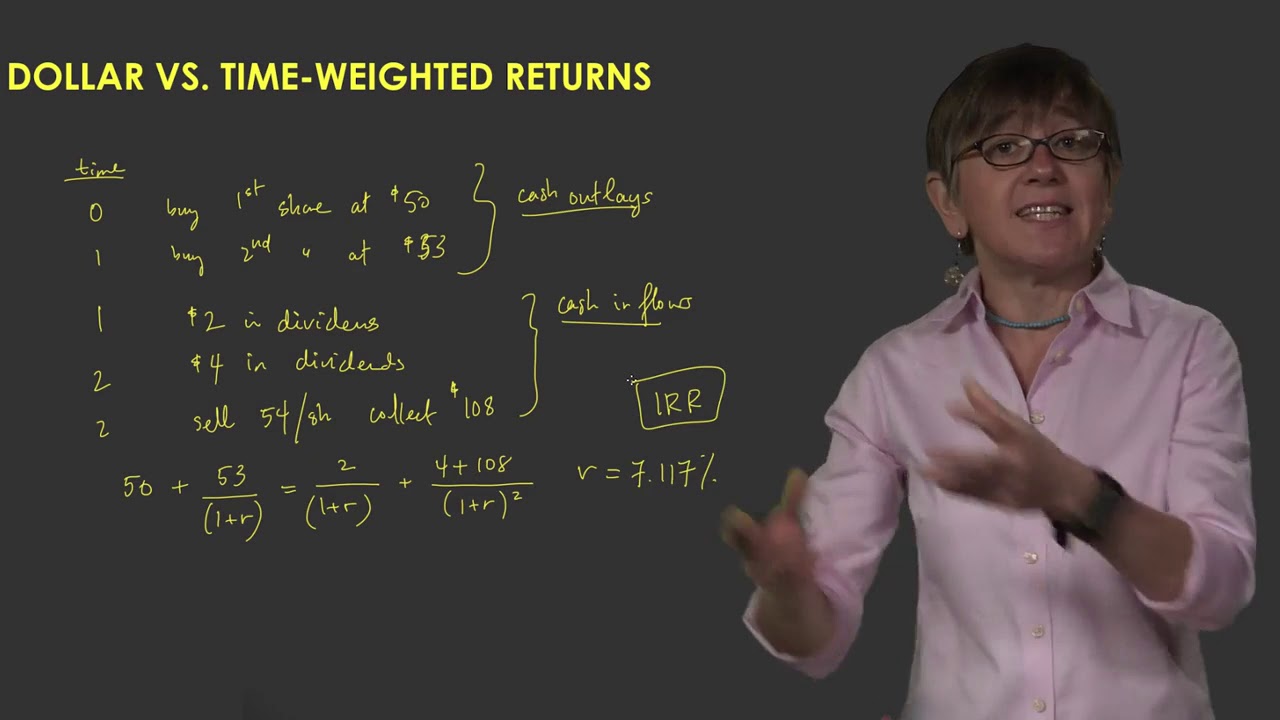 DOLLAR VS. TIME-WEIGHTED RETURNS
time
0 buy 1st share at $50
1 buy 2nd " at $53
cash outlays
1 $2 in dividens
2 $4 in dividends
2 sell 54/sh collect $108
cash in flows
IRR
50 + 53/(1+r) = 2/(1+r) + 4+108/(1+r)² r = 7.117%